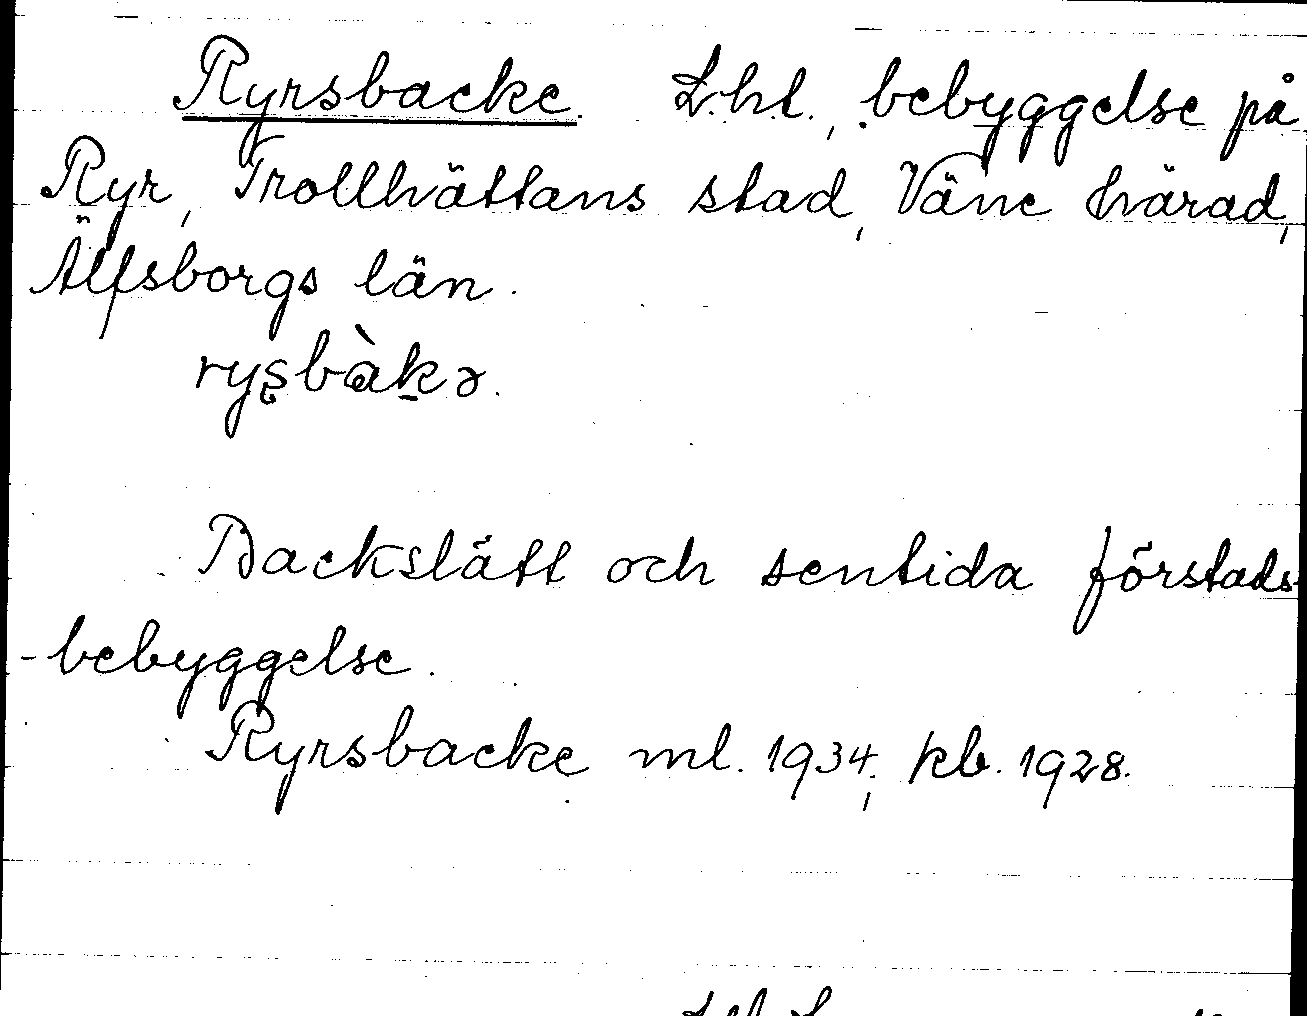 Ryrsbacke. Lht., bebyggelse på
Ryr, Trollhättans stad, Väne härad,
Älfsborgs län.
rysbàkə.
Backslätt och sentida förstads-
-bebyggelse.
Ryrsbacke ml. 1934, kb. 1928.